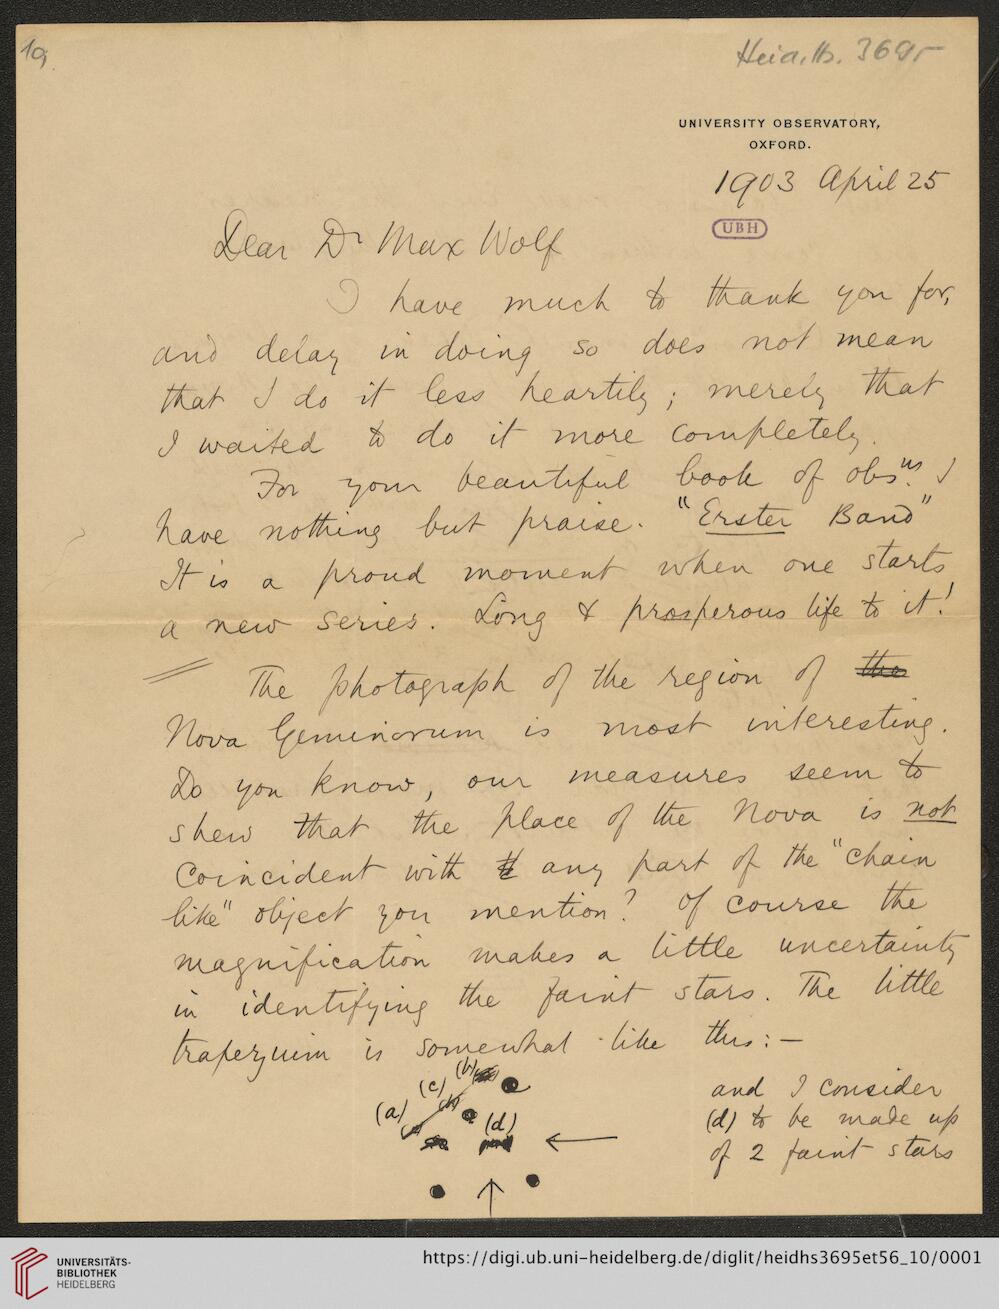 Heid. Hs. 3695
UNIVERSITY OBSERVATORY,
OXFORD.
1903 April 25
UBH
Dear Dr Max Wolf
I have much to thank you for,
and delay in doing so does not mean
that I do it less heartily; merely that
I waited to do it more completely.
For your beautiful book of obsns. I
have nothing but praise. "Erster Band"
It is a proud moment when one starts
a new series. Long & prosperous life to it!
The photograph of the region of the
Nova Geminorum is most interesting.
Do you know, our measures seem to
shew that the place of the Nova is not
coincident with any part of the "chain
like" object you mention? Of course the
magnification makes a little uncertainty
in identifying the faint stars. The little
trapezium is somewhat like this:—
(a) (c) (b) (d)
and I consider
(d) to be made up
of 2 faint stars
UNIVERSITÄTS-
BIBLIOTHEK
HEIDELBERG
https://digi.ub.uni-heidelberg.de/diglit/heidhs3695et56_10/0001